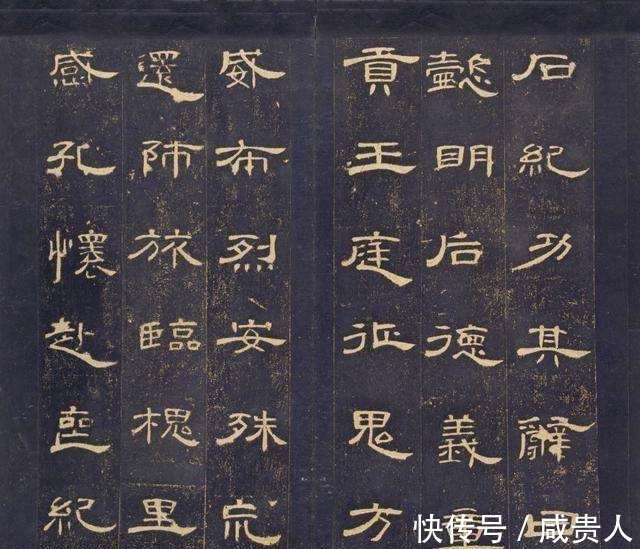 石紀功其辭曰
懿明后德義章
貢王庭征鬼方
威布烈安殊荒
還師旅臨槐里
感孔懷赴喪紀
快传号 / 咸贵人